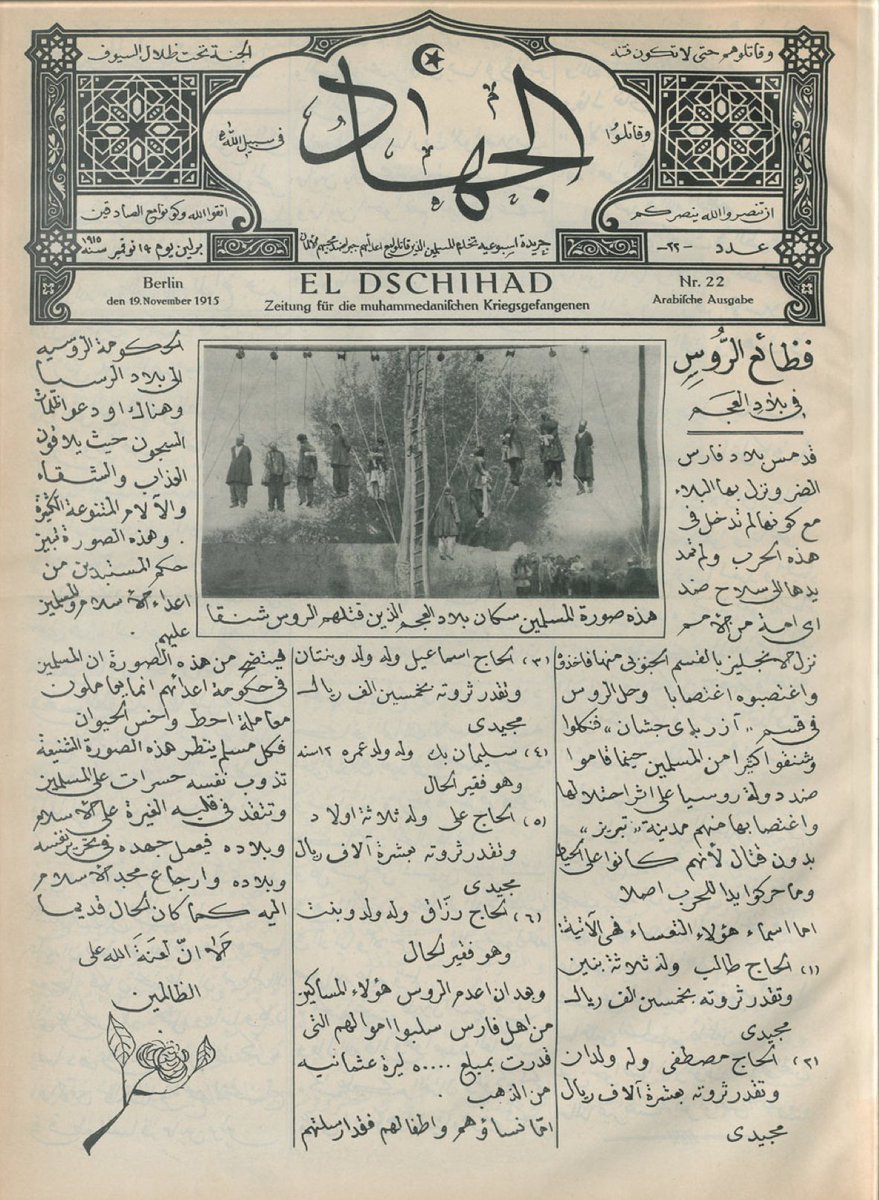 وقاتلوهم حتى لا تكون فتنة
الجنة تحت ظلال السيوف
الجهاد
وقاتلوا
في سبيل الله
ان تنصروا الله ينصركم
اتقوا الله وكونوا مع الصادقين
عدد -٢٢-
جريدة اسبوعية
برلين يوم ١٩ نوفمبر سنه ١٩١٥
Berlin
den 19. November 1915
EL DSCHIHAD
Zeitung für die muhammedanischen Kriegsgefangenen
Nr. 22
Arabische Ausgabe
فظائع الرُّوسِ
في بلاد العجم
قد مس بلاد فارس
الضر ونزل بها البلاء
مع كونها لم تدخل في
هذه الحرب ولم تمد
يدها الى سلاح ضد
اى امة من الامم
نزل الانجليز بالقسم الجنوبى منها فاخذوه
واغتصبوه اغتصابا وحل الروس
في قسم „آزربای جشان” فنكلوا
وشنقوا كثيرا من المسلمين حينما قاموا
ضد دولة روسيا على اثر احتلالها
واغتصابها منهم مدينة „تبريز”
بدون قتال لأنهم كانوا على الحياد
وما حركوا يدا للحرب اصلا
اما اسماء هؤلاء التعساء فهى الآتية:
(١) الحاج طالب وله ثلاثة بنين
وتقدر ثروته بخمسين الف ريال
مجيدى
(٢) الحاج مصطفى وله ولدان
وتقدر ثروته بعشرة آلاف ريال
مجيدى
هذه صورة المسلمين سكان بلاد العجم الذين قتلهم الروس شنقا
(٣) الحاج اسماعيل وله ولد وبنتان
وتقدر ثروته بخمسين الف ريال
مجيدى
(٤) سليمان بك وله ولد عمره ١٢ سنه
وهو فقير الحال
(٥) الحاج على وله ثلاثة اولاد
وتقدر ثروته بعشرة آلاف ريال
مجيدى
(٦) الحاج رزّاق وله ولد وبنت
وهو فقير الحال
وبعد ان اعدم الروس هؤلاء المساكين
من اهل فارس سلبوا اموالهم التى
قدرت بمبلغ ٥٠٠٠٠ ليرة عثمانيه
من الذهب.
امّا نساؤهم واطفالهم فقد ارسلتهم
الحكومة الروسيه
الى بلاد الرسيا
وهناك اودعوا ظلمات
السجون حيث يلاقون
العذاب والشقاء
والآلام المتنوعة الكثيرة
. وهذه الصورة تبين
حكم المستبدين من
اعداء الاسلام والمسلمين
عليهم.
فيتضح من هذه الصورة ان المسلمين
في حكومة اعدائهم انما يعاملون
معاملة احط واخس الحيوان
فكل مسلم ينظر هذه الصورة الشنيعة
تذوب نفسه حسرات على المسلمين
وتتقد في قلبه الغيرة على الاسلام
وبلاده فيعمل جهده في تحرير نفسه
وبلاده وارجاع مجد الاسلام
اليه كما كان الحال قديما
الا انّ لعنة الله على
الظالمين.